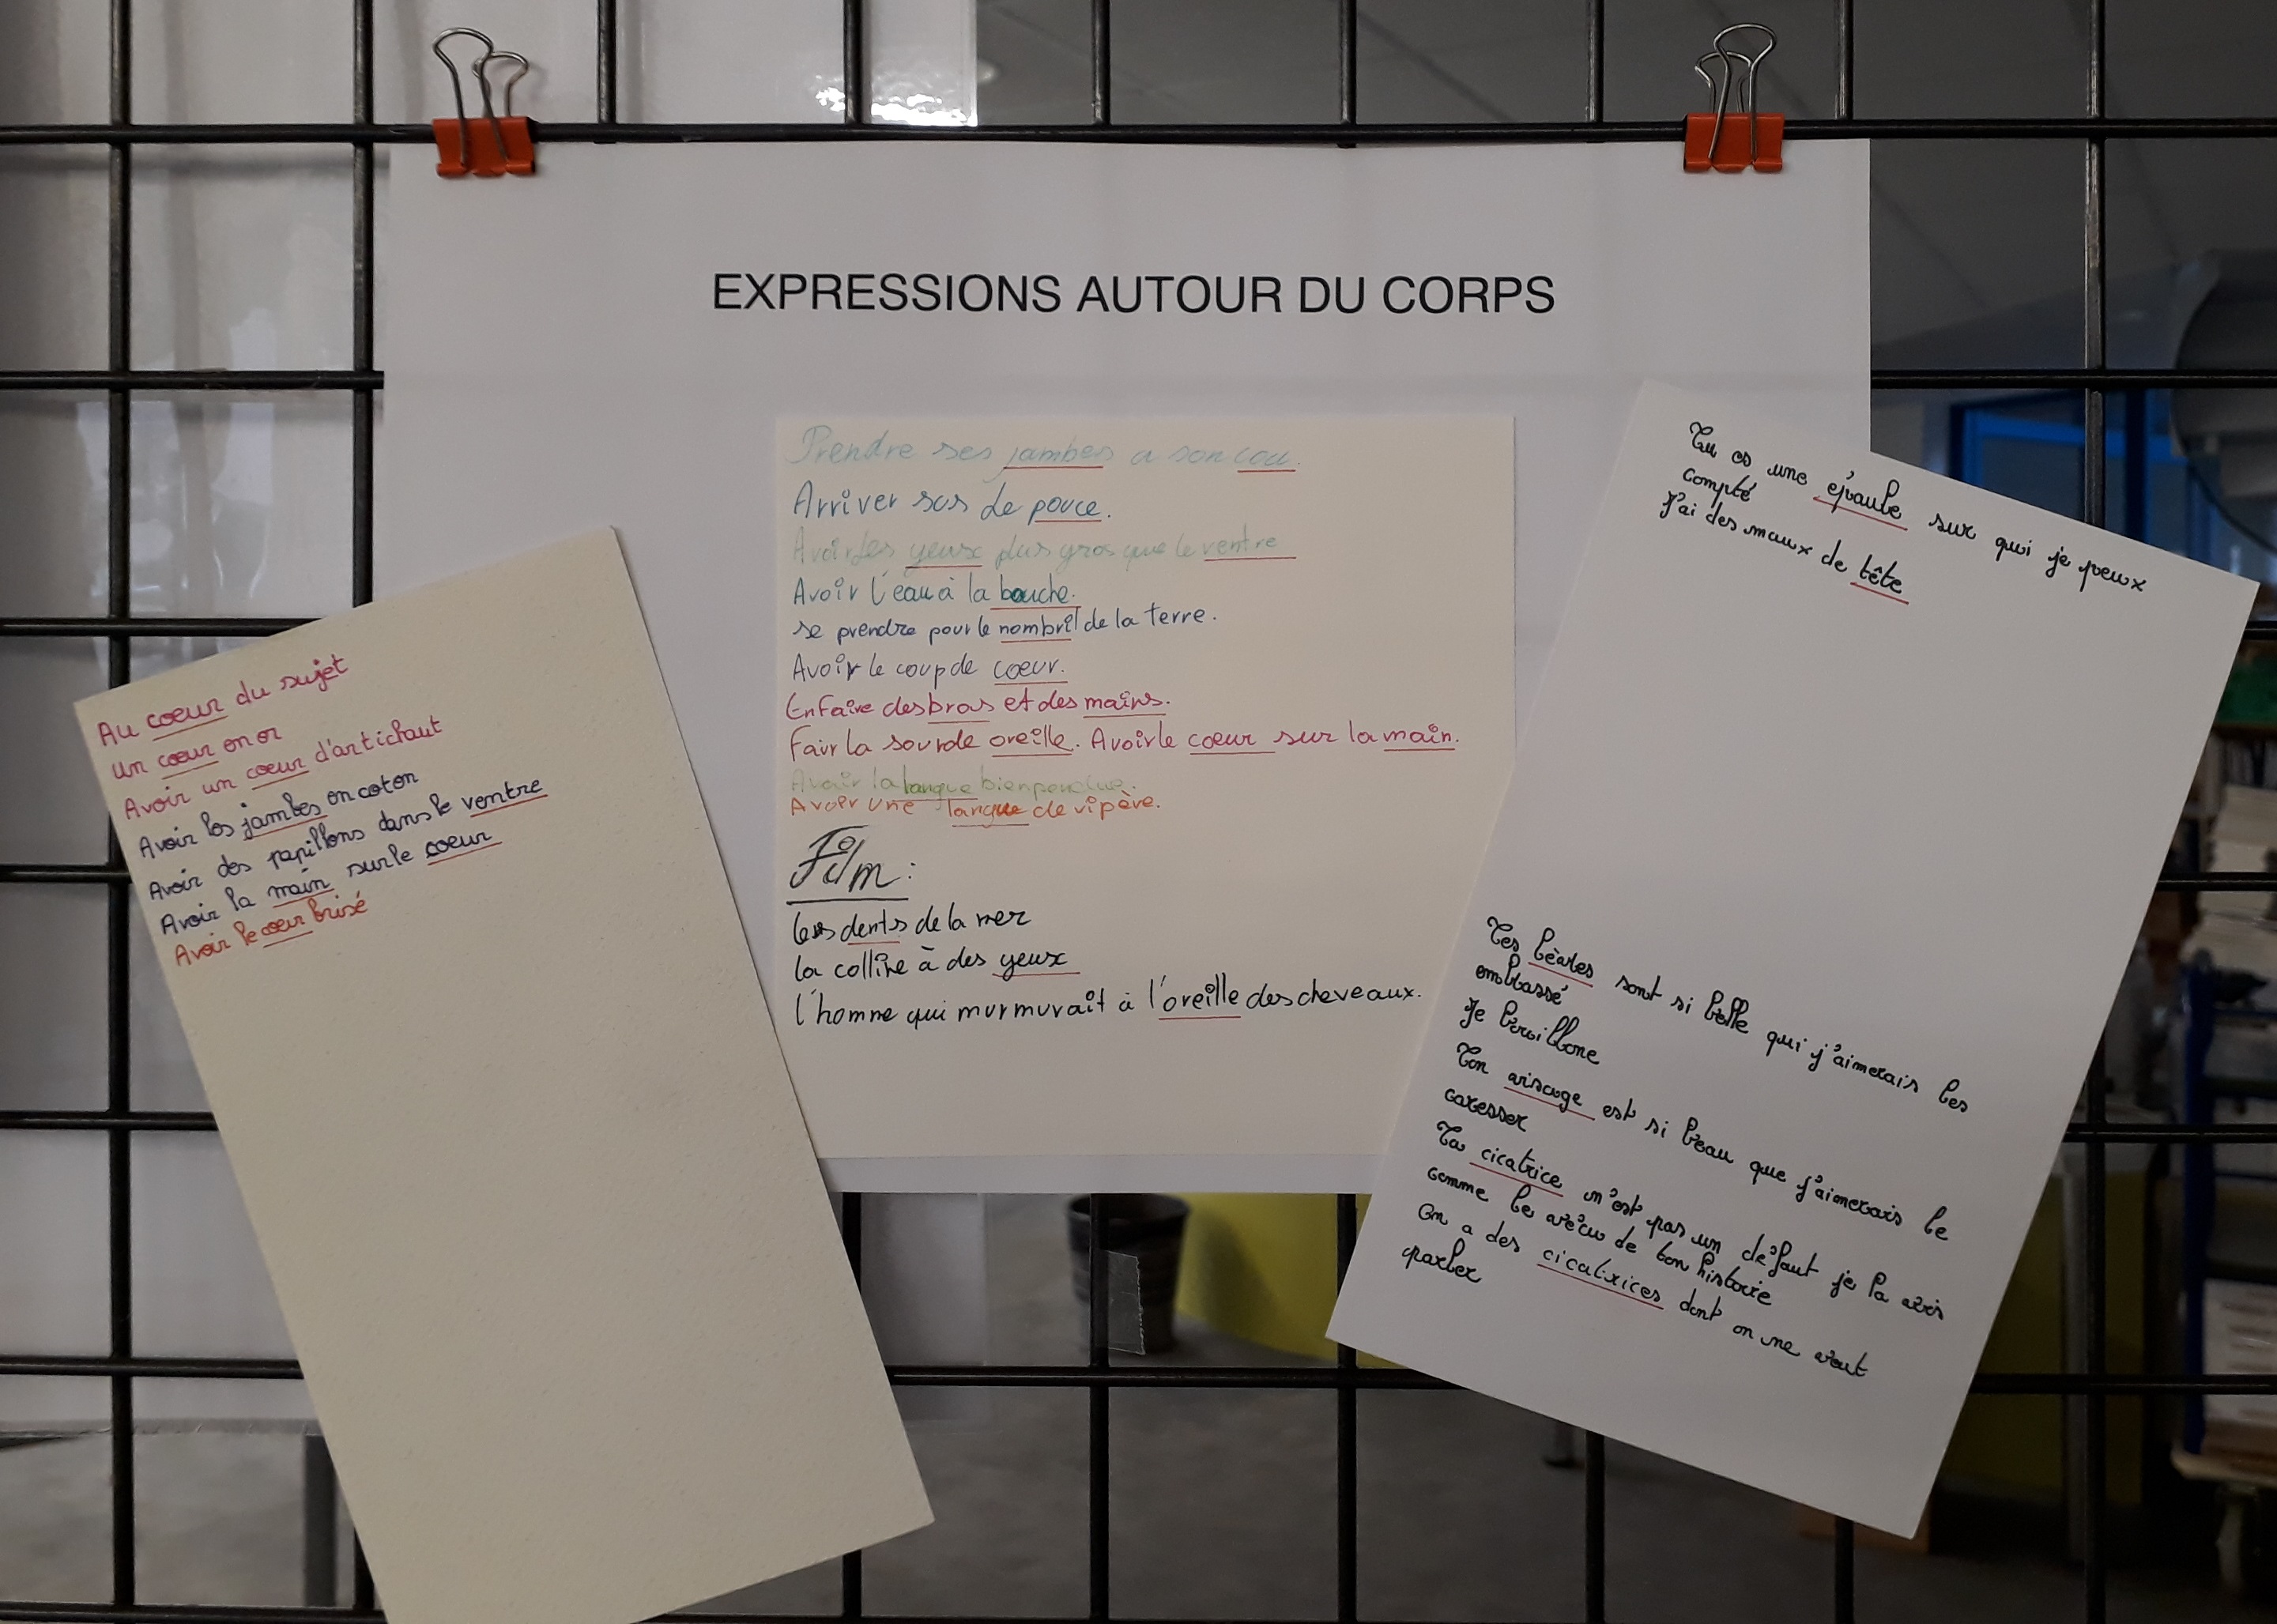 EXPRESSIONS AUTOUR DU CORPS
Au coeur du sujet
un coeur en or
Avoir un coeur d'artichaut
Avoir les jambes en coton
Avoir des papillons dans le ventre
Avoir la main sur le coeur
Avoir le coeur brisé
Prendre ses jambes a son cou.
Arriver sus le pouce.
Avoir les yeux plus gros que le ventre
Avoir l'eau à la bouche.
se prendre pour le nombril de la terre.
Avoir le coup de coeur.
En faire des bras et des mains.
Fair la sourde oreille. Avoir le coeur sur la main.
Avoir la langue bien pendue.
Avoir une langue de vipère.
Film :
les dents de la mer
la colline à des yeux
l'homme qui murmurait à l'oreille des cheveaux.
Tu es une épaule sur qui je peux
compté
J'ai des maux de tête
Tes lèvres sont si belle qui j'aimerais les
embrassé
Je bouillone
Ton visage est si beau que j'aimerais le
caresser
Ta cicatrice n'est pas un défaut je la vois
comme le vécu de ton histoire
On a des cicatrices dont on ne veut
parler